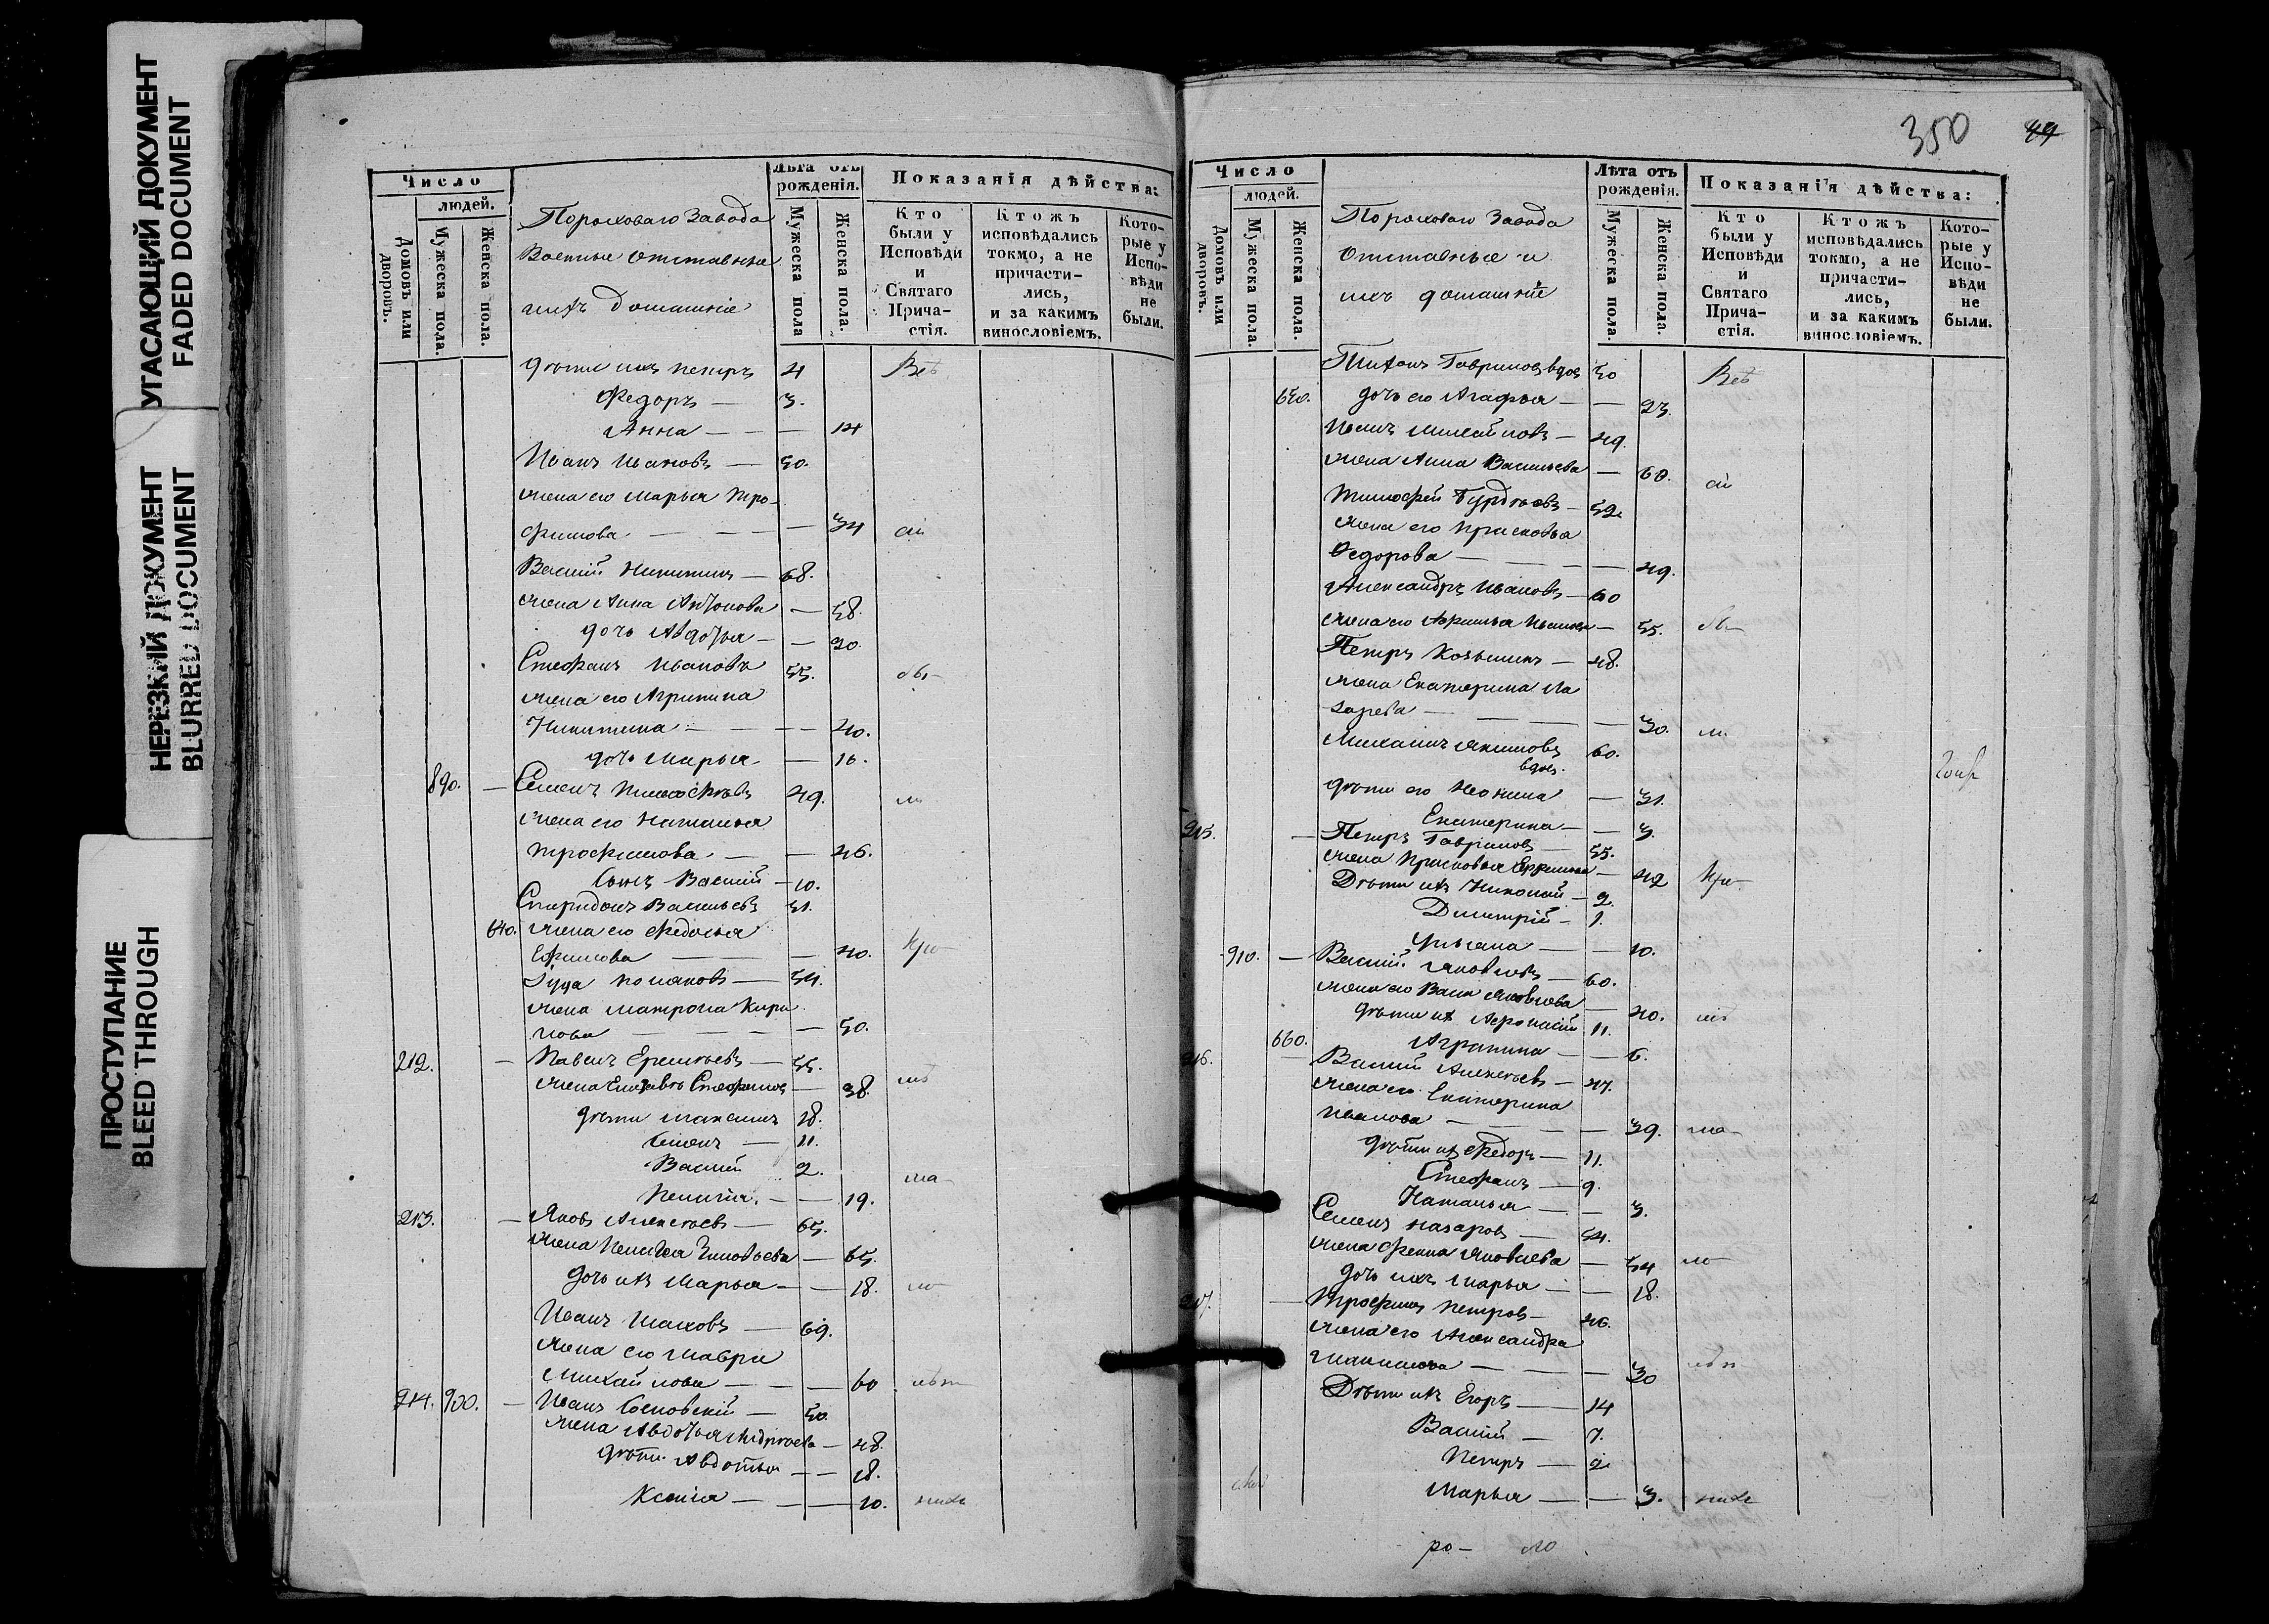 УГАСАЮЩИЙ ДОКУМЕНТ
FADED DOCUMENT
НЕРЕЗКИЙ ДОКУМЕНТ
BLURRED DOCUMENT
ПРОСТУПАНИЕ
BLEED THROUGH
Число
людей.
Домовъ или дворовъ.
Мужеска пола.
Женска пола.
Пороховаго Завода
Военные отставные
и ихъ домашніе
Лѣта отъ рожденія.
Мужеска пола
Женска пола.
Показанія дѣйства:
Кто были у Исповѣди и Святаго Прича-стія.
Ктожъ исповѣдались токмо, а не причасти-лись, и за какимъ винословіемъ.
Кото-рые у Испо-вѣди не были.
дѣти ихъ Петръ 4 Всѣ
Федоръ — 3.
Анна — — — 14
Иванъ Ивановъ — 50.
жена его Марья Тро-
фимова — — — — 34 сіи
Василій Никитинъ — 68.
жена Анна Антонова — 58.
дочь Авдотья — — 30.
Стефанъ Ивановъ 55. объ-
жена его Агрипина
Никитина — — — — 40.
дочь Марья — 16.
890. — Семенъ Тимофѣевъ 49. яв
жена его Наталья
Трофимова — — 46.
Сынъ Василій — 10.
Спиридонъ Васильевъ 51.
640. жена его Федосья
Ефимова — — 40. кр
Полиановъ — 54.
жена Матрона Кири
лова — — — — 50.
212. — Павелъ Еремѣевъ — 55.
жена Елизавета Стефанова — 38.
дѣти Максимъ 18.
Семенъ — 11.
Василій 2.
Пелагія. — — 19.
213. — Яковъ Алексѣевъ — 65.
жена Пелагея Зиновьева — 65.
дочь ихъ Марья — — 18.
Иванъ — 69.
жена его Мавра
Михайлова — — — 60
214. 900. — Иванъ Сосновскій — 50.
жена Авдотья Андреева — 48.
дѣти Авдотья — — 18.
Ксенія — — — 10. ниже
350 44
Число
людей.
Домовъ или дворовъ.
Мужеска пола.
Женска пола.
Пороховаго Завода
отставные и
ихъ домашніе
Лѣта отъ рожденія.
Мужеска пола.
Женска пола.
Показанія дѣйства:
Кто были у Исповѣди и Святаго Прича-стія.
Ктожъ исповѣдались токмо, а не причасти-лись, и за какимъ винословіемъ.
Кото-рые у Испо-вѣди не были.
Тихонъ Гавриловъ вдов 50 Всѣ
650. дочь его Агафья — — 23.
Иванъ Михайловъ — 49.
жена Анна Васильева — 60. сіи
Тимофей — 52
жена его Прасковья
Федорова — — — — 49.
Александръ Ивановъ — 60
жена его Афимья Иванова — 55. объ-
Петръ Козьминъ — 48.
жена Екатерина Ла
зарева — — — — 30.
Михаилъ Якимовъ 60.
вдов.
дѣти его Неонила — 31.
Екатерина — — 3.
215. — Петръ Гавриловъ — 55.
жена Прасковья Ефимова — 42
Дѣти ихъ Николай — 2.
Димитрій — 1.
Ульяна — — 10.
910. — Василій Яковлевъ — 60.
жена его Васса Яковлева — 40.
дѣти ихъ Афонасій 11.
660. Агрипина — — 6.
216. — Василій Алексѣевъ — 47.
жена его Екатерина
Иванова — — — — 39.
дѣти ихъ Федоръ — 11.
Стефанъ — 9.
Наталья — — 3.
Семенъ Назаровъ — 54.
жена Фекла Яковлева — 54
дочь ихъ Марья — — 18.
217. — Трофимъ Петровъ — 46.
жена его Александра
Максимова — — — 30
Дѣти ихъ Егоръ — 14
Василій — 7.
Петръ — 2
Марья — — 3. ниже
ро — ло